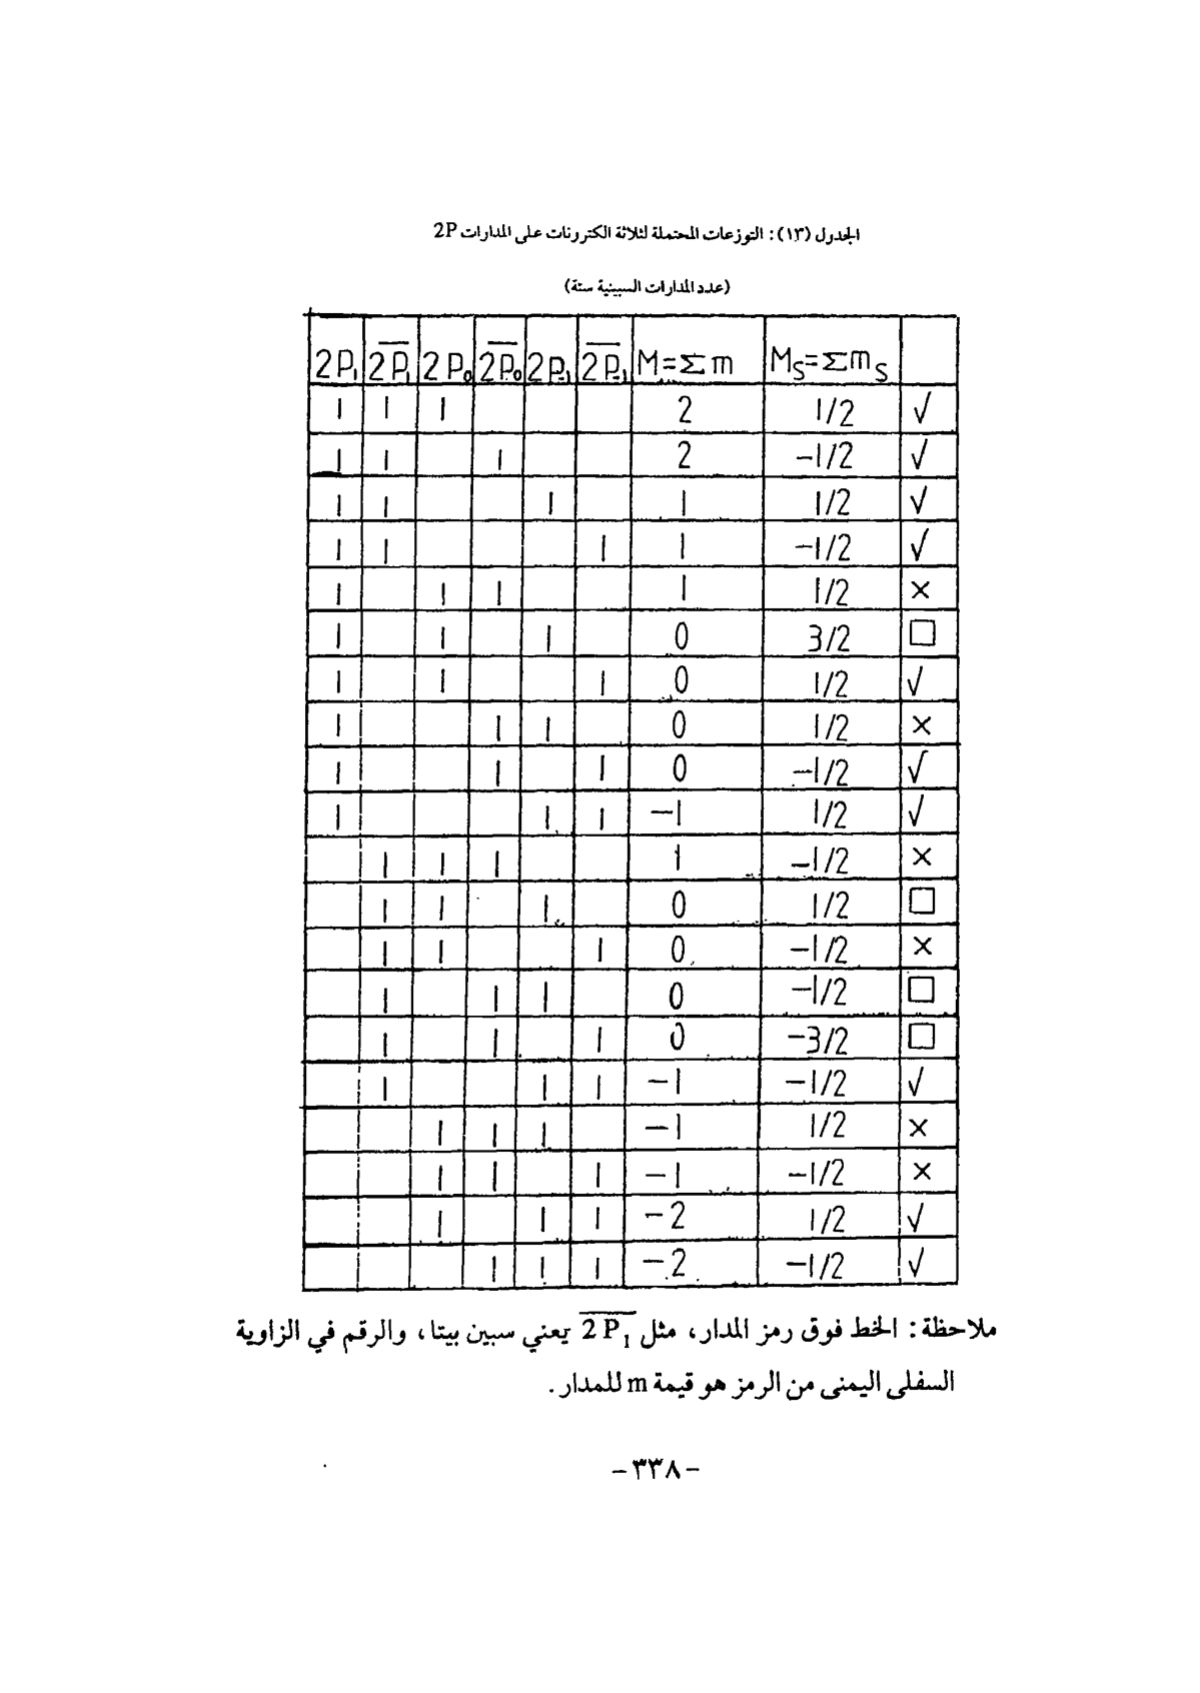 الجدول (١٣) : التوزعات المحتملة لثلاثة الكترونات على المدارات 2P
(عدد المدارات السبينية ستة)
2P₁ 2P̅₁ 2P₀ 2P̅₀ 2P₋₁ 2P̅₋₁ M=Σm Mₛ=Σmₛ
1 1 1 2 1/2 √
1 1 1 2 −1/2 √
1 1 1 1 1/2 √
1 1 1 1 −1/2 √
1 1 1 1 1/2 ×
1 1 1 0 3/2 □
1 1 1 0 1/2 √
1 1 1 0 1/2 ×
1 1 1 0 −1/2 √
1 1 1 −1 1/2 √
1 1 1 1 −1/2 ×
1 1 1 0 1/2 □
1 1 1 0 −1/2 ×
1 1 1 0 −1/2 □
1 1 1 0 −3/2 □
1 1 1 −1 −1/2 √
1 1 1 −1 1/2 ×
1 1 1 −1 −1/2 ×
1 1 1 −2 1/2 √
1 1 1 −2 −1/2 √
ملاحظة : الخط فوق رمز المدار، مثل 2P̅₁ يعني سبين بيتا، والرقم في الزاوية
السفلى اليمنى من الرمز هو قيمة m للمدار .
– ٣٣٨ –